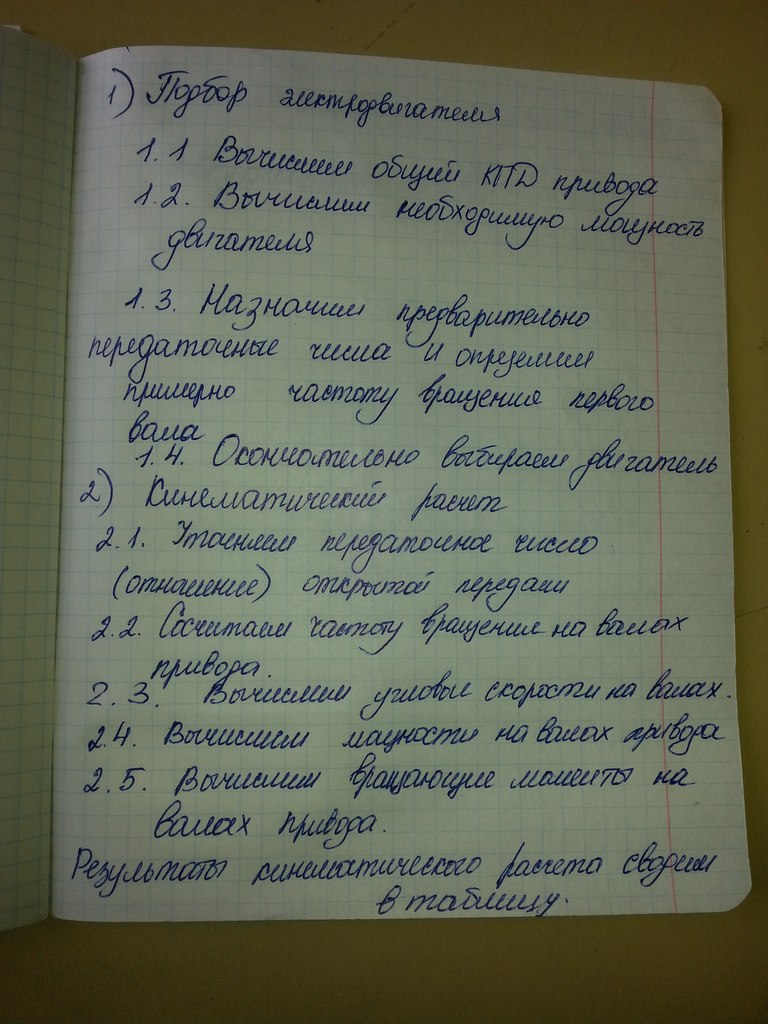 1) Подбор электродвигателя
1.1 Вычислим общий КПД привода
1.2. Вычислим необходимую мощность
двигателя
1.3. Назначим предварительно
передаточные числа и определим
примерно частоту вращения первого
вала
1.4. Окончательно выбираем двигатель
2) Кинематический расчет
2.1. Уточняем передаточное число
(отношение) открытой передачи
2.2. Сосчитаем частоту вращения на валах
привода.
2.3. Вычислим угловые скорости на валах.
2.4. Вычислим мощности на валах привода
2.5. Вычислим вращающие моменты на
валах привода.
Результаты кинематического расчета сводим
в таблицу.